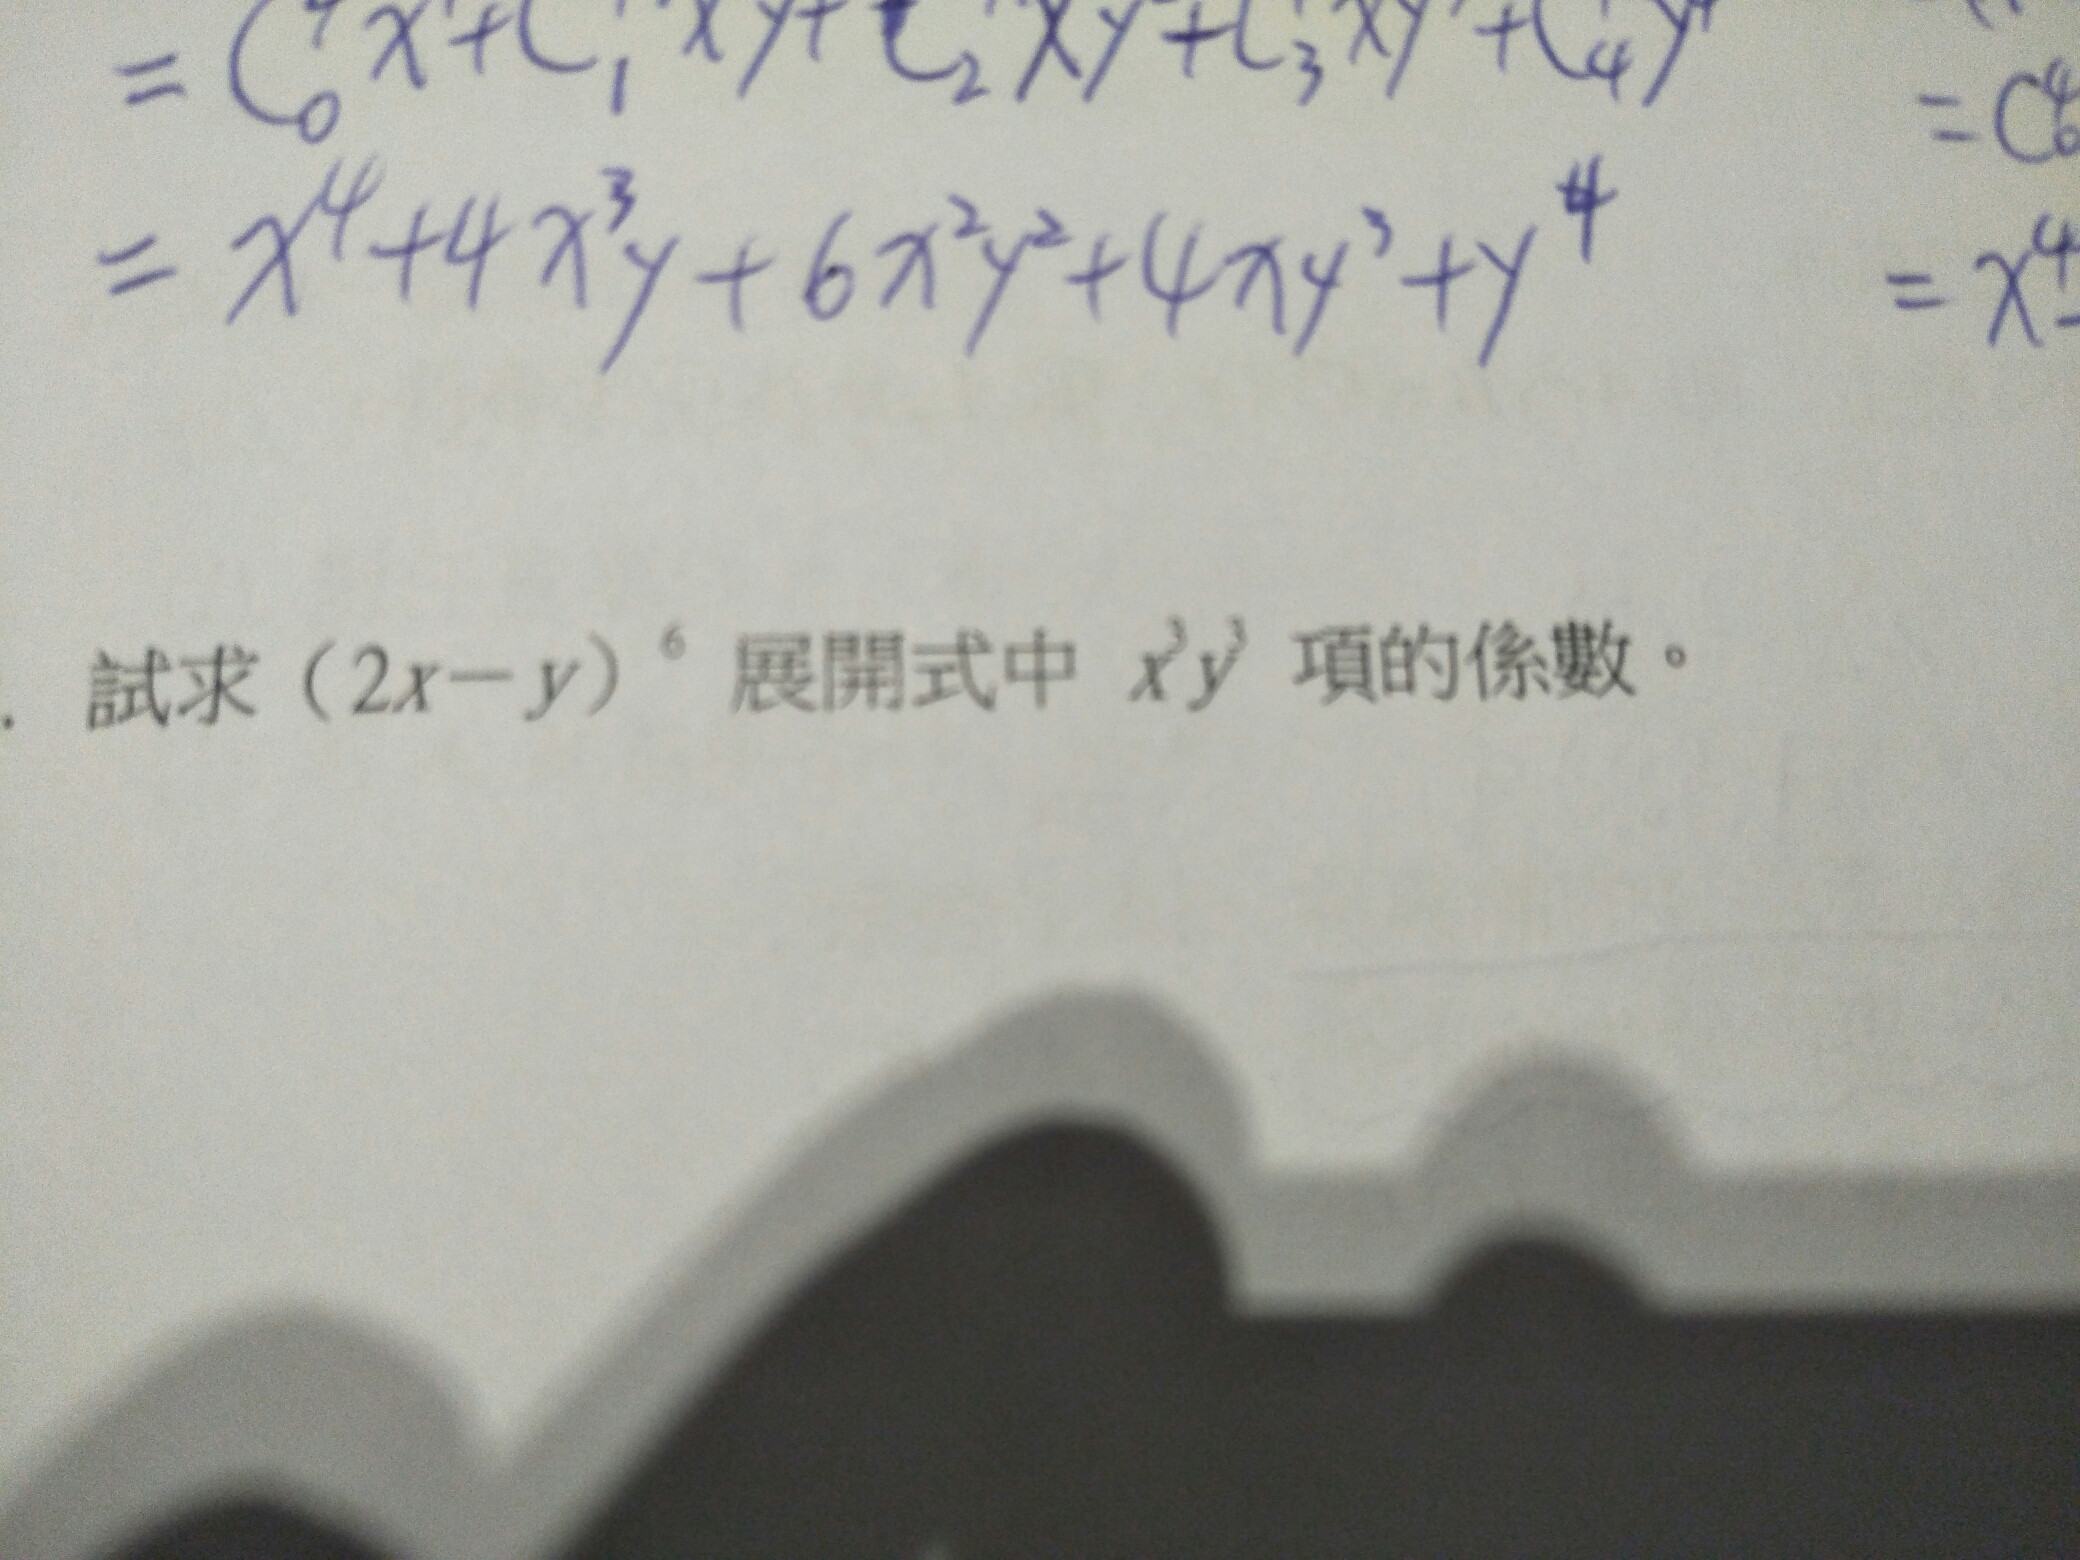 = C₀⁴x⁴+C₁⁴x³y+C₂⁴x²y²+C₃⁴xy³+C₄⁴y⁴
= C₀⁴
= x⁴+4x³y+6x²y²+4xy³+y⁴
= x⁴-
. 試求（2x－y）⁶ 展開式中 x³y³ 項的係數。